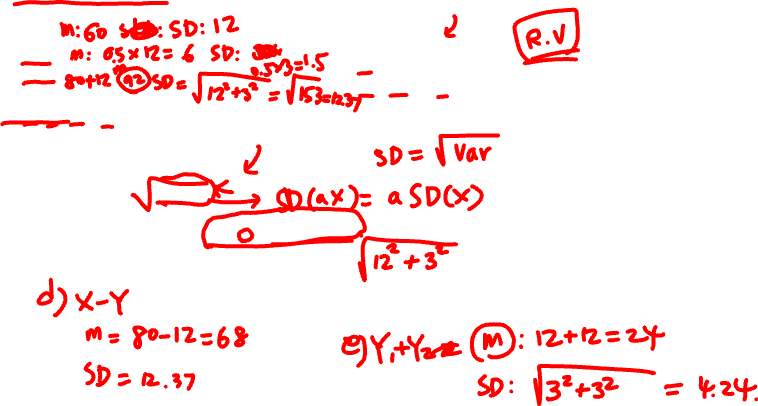 m: 60 SD: 12
R.V
m: 0.5 x 12 = 6 SD: 0.5x3=1.5
80+12 92 SD = √12²+3² = √153 = 12.37
SD = √Var
SD(ax) = a SD(x)
0
√12² + 3²
d) X-Y
m = 80-12=68
SD = 12.37
e) Y₁+Y₂ m: 12+12=24
SD: √3²+3² = 4.24.